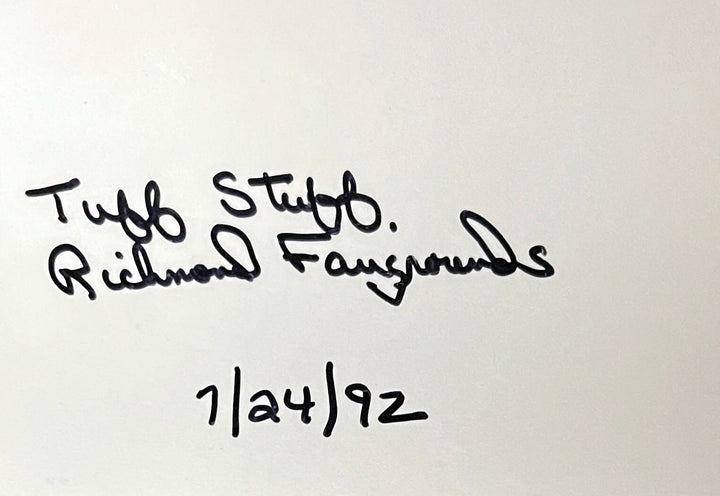 Tuff Stuff.
Richmond Fairgrounds
1/24/92